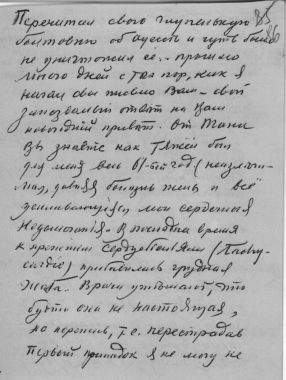 Перечитал свою глупенькую
болтовню об и чуть было
не уничтожил её... прошло
много дней с тех пор, как я
начал своё письмо Вам – свой
запоздалый ответ на Ваш
новогодний привет. От Тани
Вы знаете как тяжёл был
для меня весь 61-ый год (
болезнь жены и всё
усиливающаяся моя сердечная
недомогания. В последнее время
к прежним сердцебиениям (
) прибавилась грудная
жаба. Врачи утешают, что
будто она не настоящая,
но поверьте, т.е. перестрадав
первый припадок я не могу не